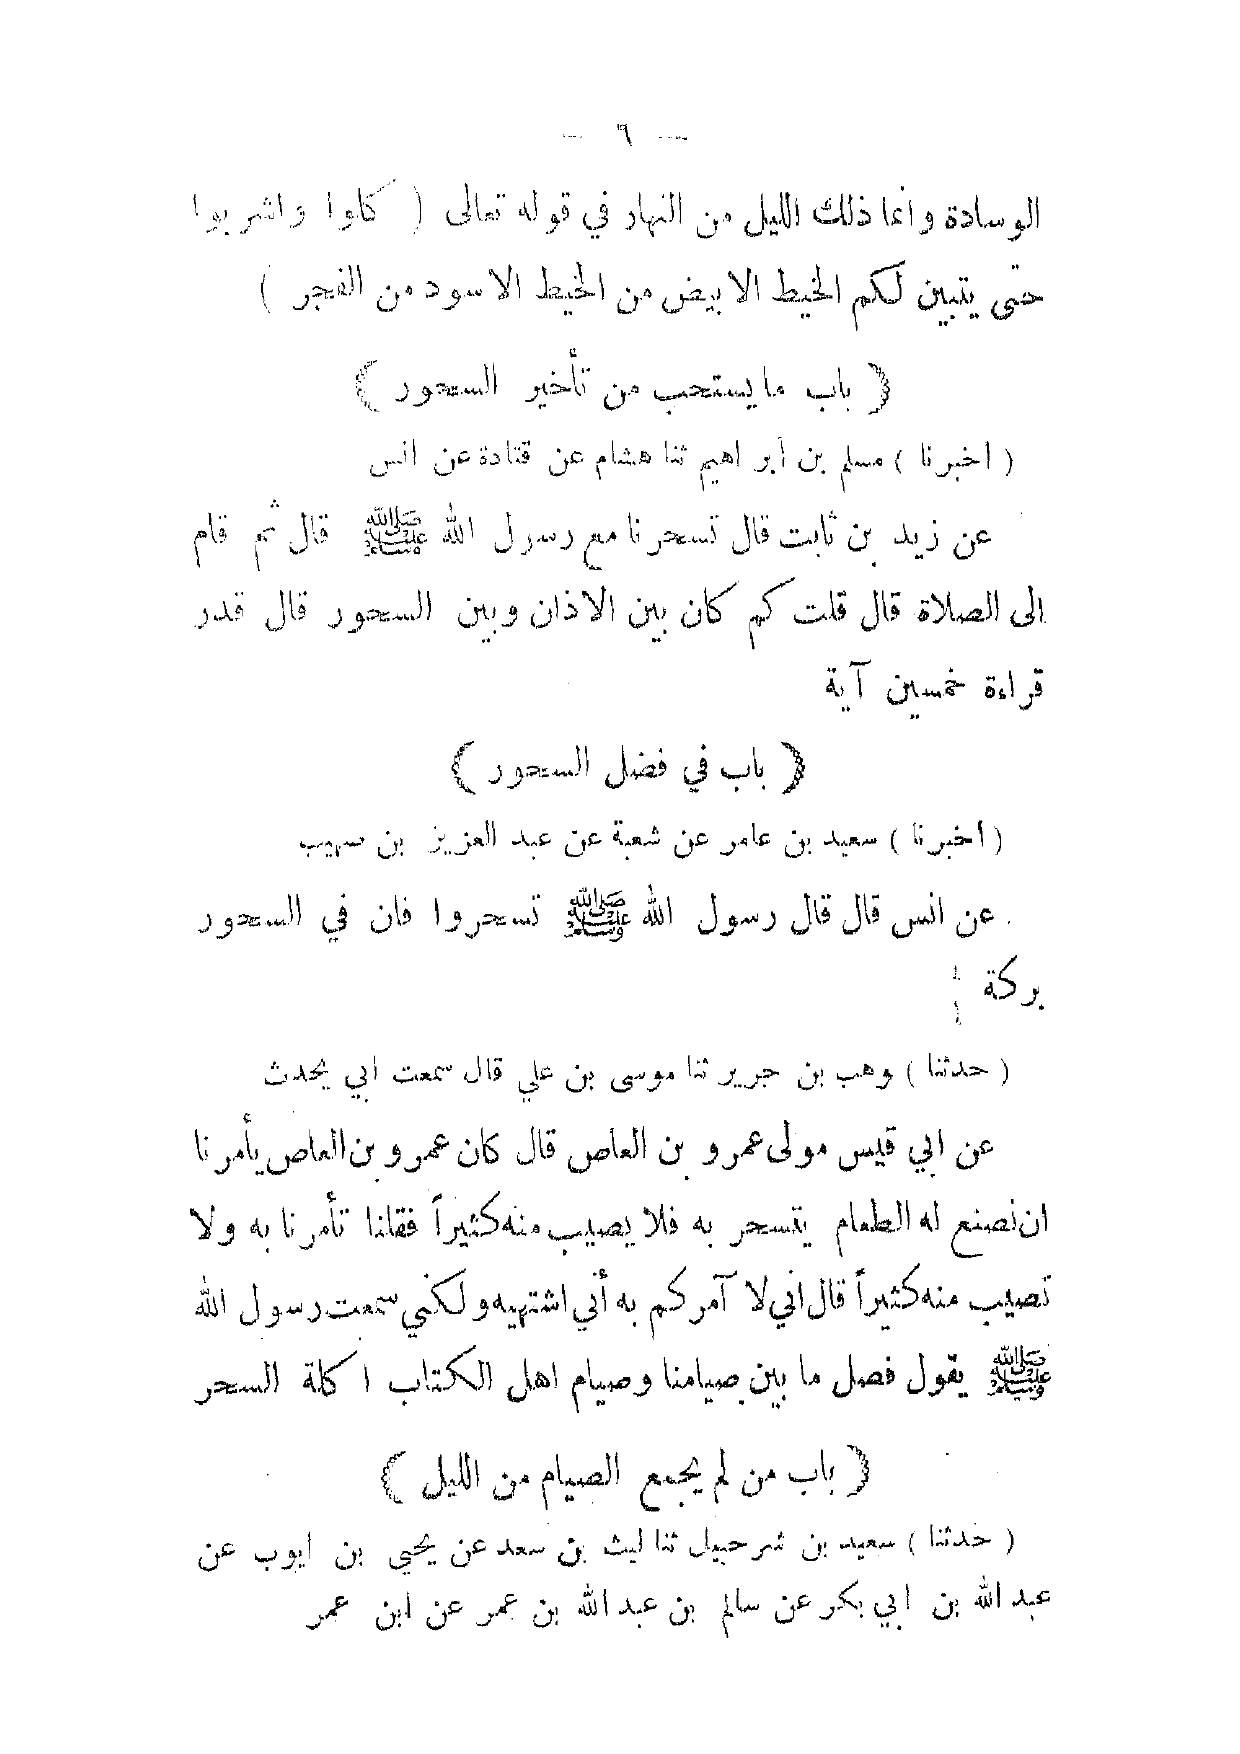 — ٦ —
الوسادة وانما ذلك الليل من النهار في قوله تعالى ( كلوا واشربوا
حتى يتبين لكم الخيط الابيض من الخيط الاسود من الفجر )
( باب مايستحب من تأخير السحور )
( أخبرنا ) مسلم بن أبراهيم ثنا هشام عن قتادة عن انس
عن زيد بن ثابت قال تسحرنا مع رسول الله ﷺ قال ثم قام
الى الصلاة قال قلت كم كان بين الاذان وبين السحور قال قدر
قراءة خمسين آية
( باب في فضل السحور )
( أخبرنا ) سعيد بن عامر عن شعبة عن عبد العزيز بن صهيب
عن انس قال قال رسول الله ﷺ تسحروا فان في السحور
بركة
( حدثنا ) وهب بن جرير ثنا موسى بن علي قال سمعت ابي يحدث
عن ابي قيس مولى عمرو بن العاص قال كان عمرو بن العاص يأمرنا
ان نصنع له الطعام يتسحر به فلا يصيب منه كثيراً فقلنا تأمرنا به ولا
تصيب منه كثيراً قال اني لا آمركم به أني اشتهيه ولكني سمعت رسول الله
ﷺ يقول فصل ما بين صيامنا وصيام اهل الكتاب اكلة السحر
( باب من لم يجمع الصيام من الليل )
( حدثنا ) سعيد بن شرحبيل ثنا ليث بن سعد عن يحيى بن ايوب عن
عبد الله بن ابي بكر عن سالم بن عبد الله بن عمر عن ابن عمر